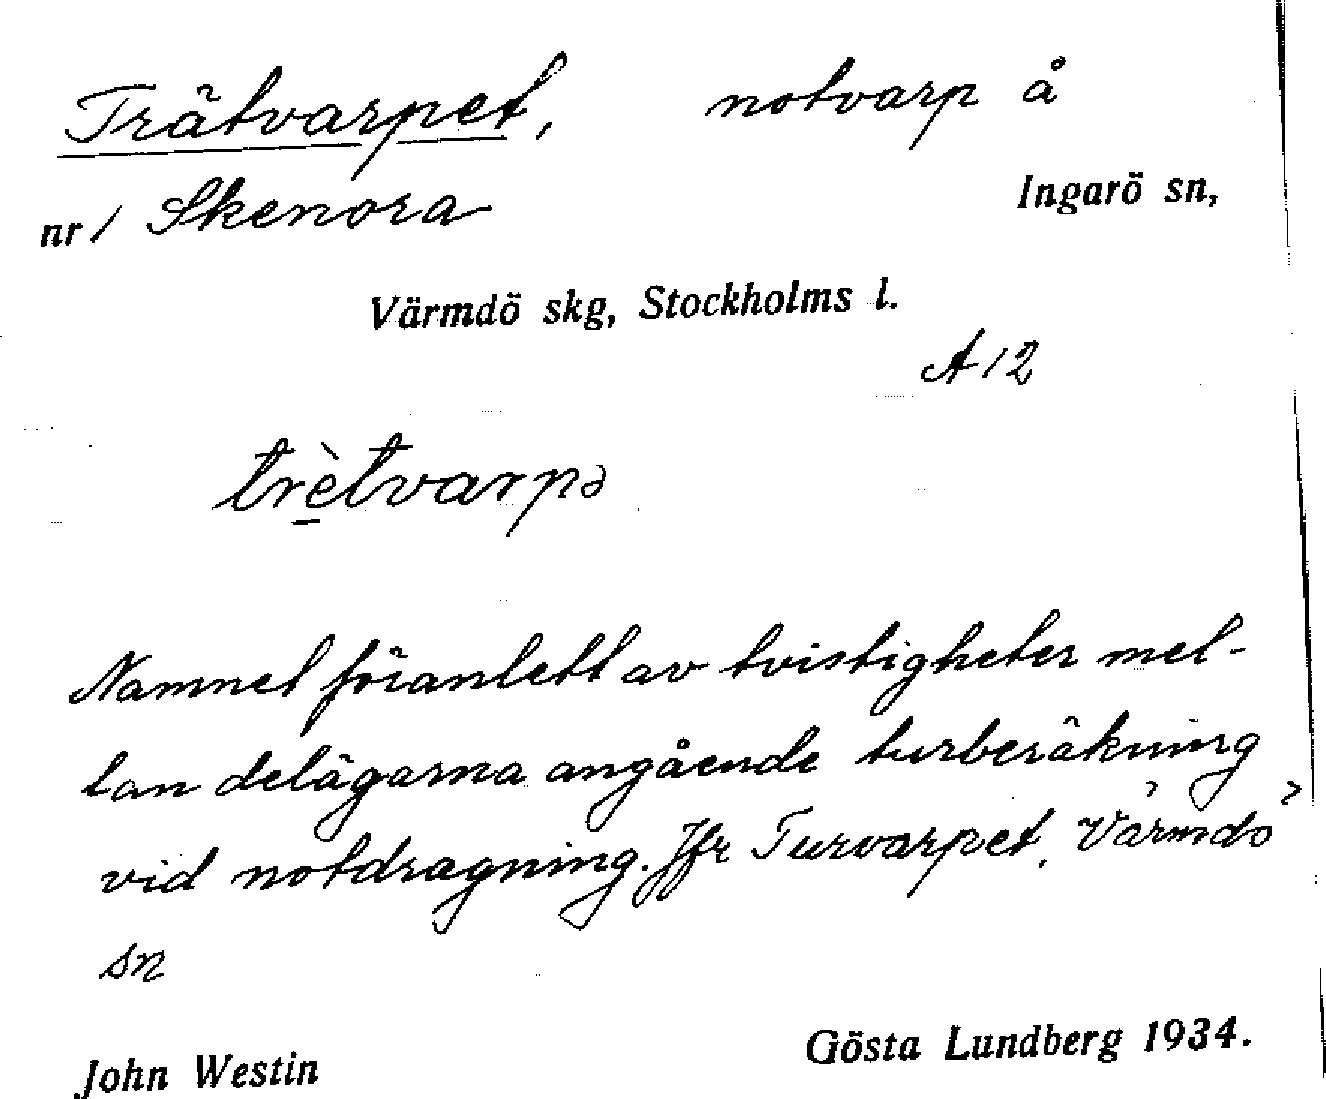 Trätvarpet, notvarp å
nr 1 Skenora Ingarö sn,
Värmdö skg, Stockholms l.
A12
trètvarpə
Namnet föranlett av tvistigheter mel-
lan delägarna angående turberäkning
vid notdragning. Jfr Turvarpet, Värmdö
sn
John Westin Gösta Lundberg 1934.